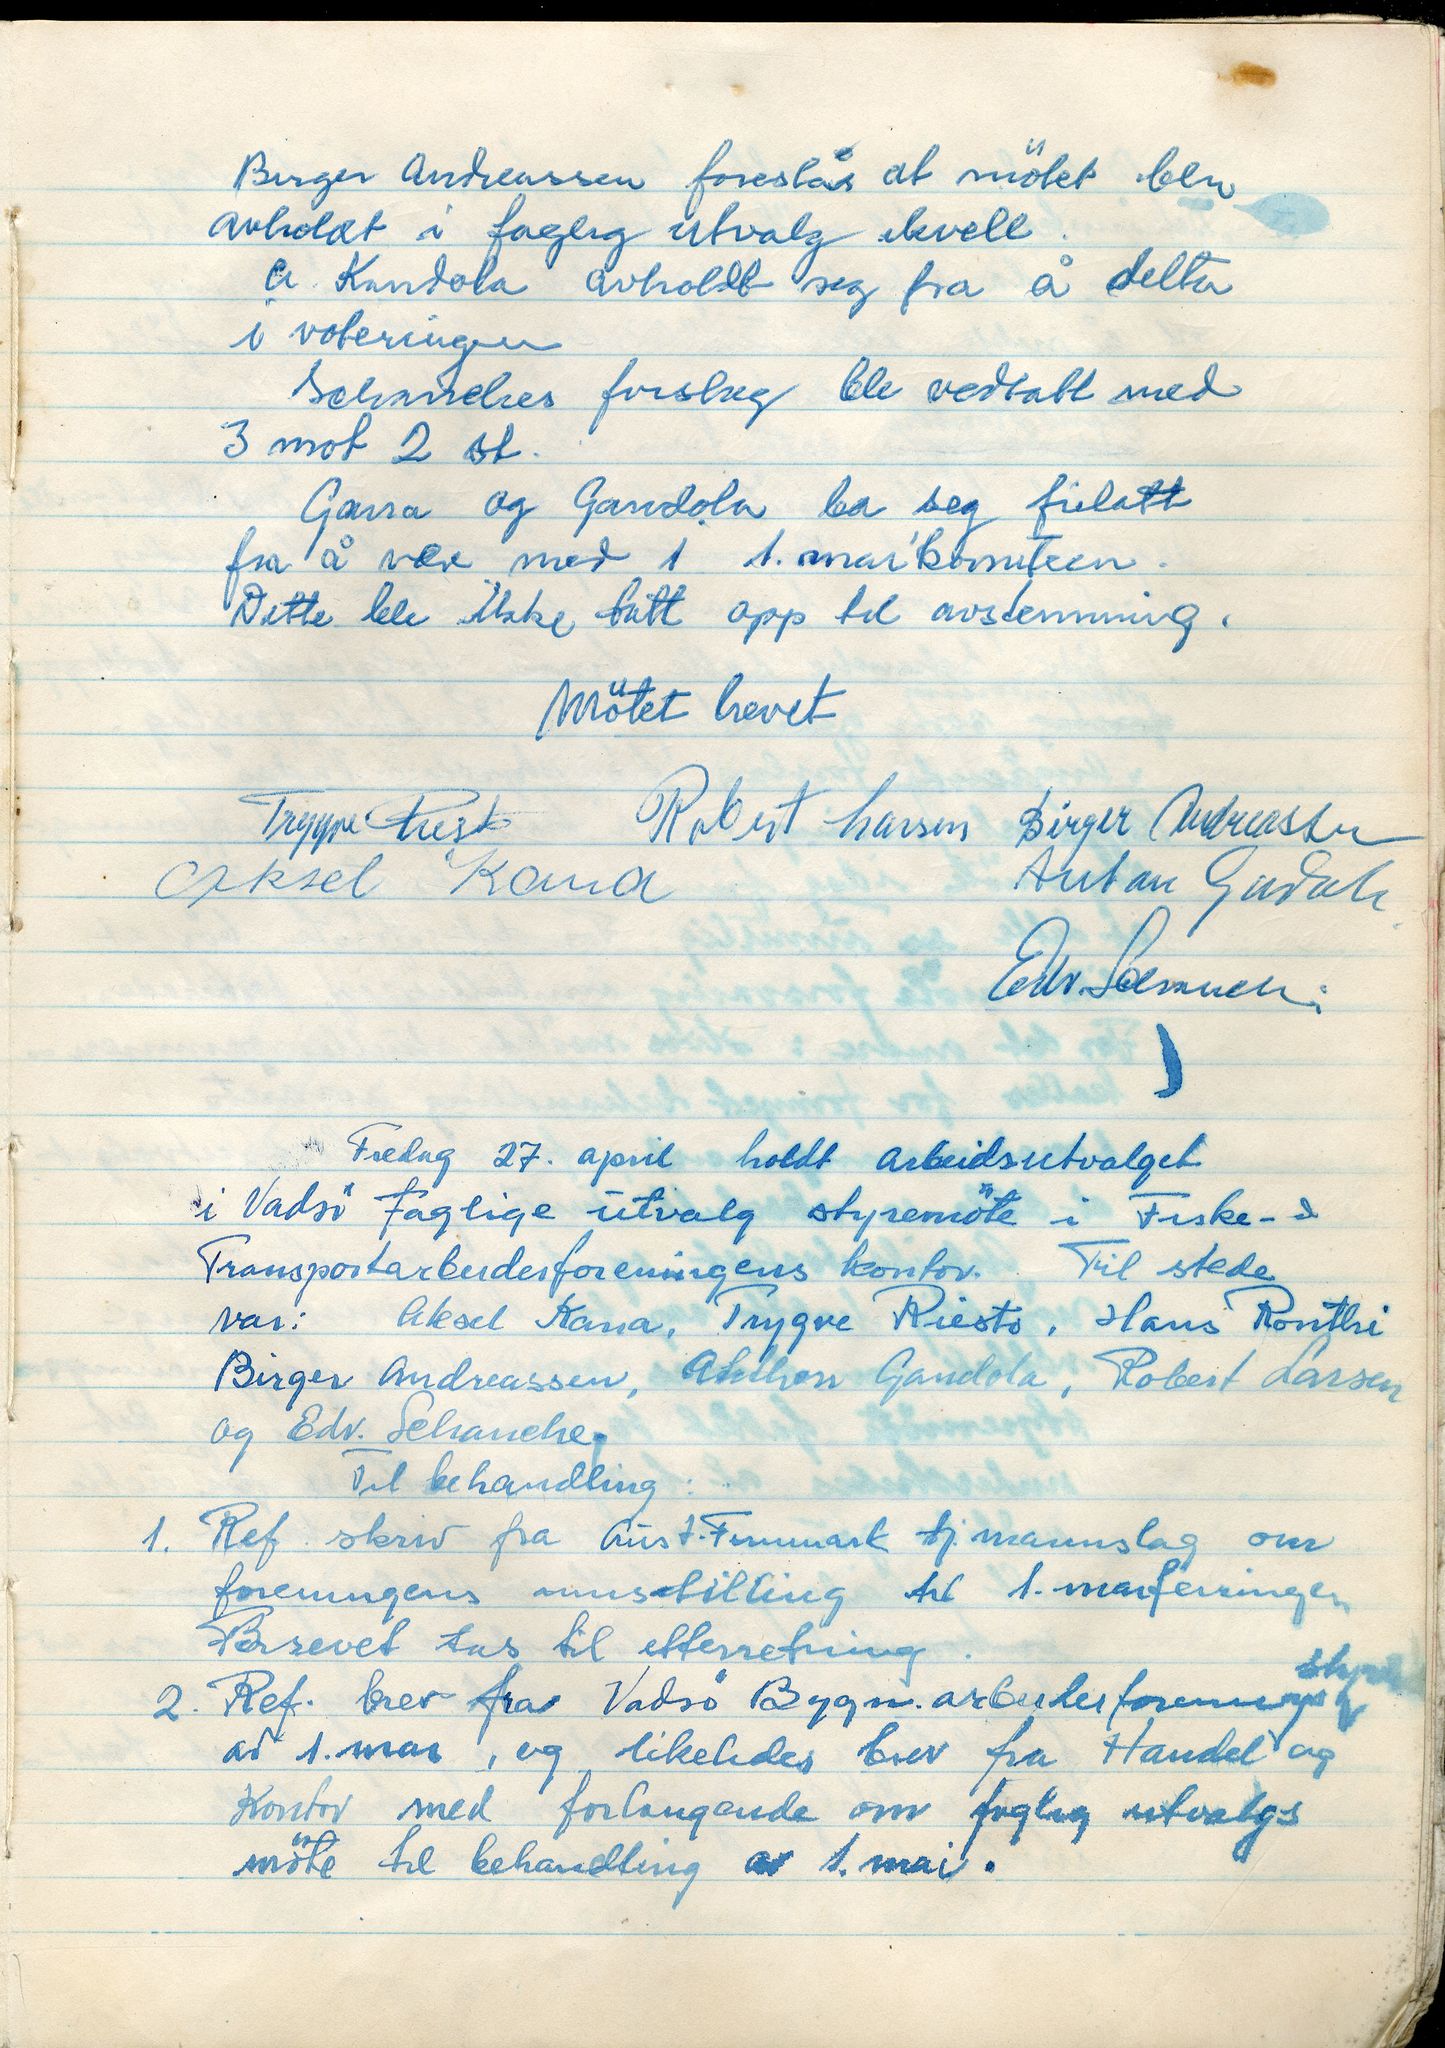 Birger Andreassen foreslås at mötet blev
avholdt i faglig utvalg ikvell.
A. Kandola avholdt seg fra å delta
i voteringen
Schanches forslag ble vedtatt med
3 mot 2 st.
Gama og Gandola ba seg fritatt
fra å være med i 1. mai komiteen.
Dette ble ikke tatt opp til avstemming.
Mötet hevet
Trygve Riesto Robert Larsen Birger Andreassen
Aksel Kana Anton Gandola
Edv. Schanche
Fredag 27. april holdt arbeidsutvalget
i Vadsö Faglige utvalg styremöte i Fiske- &
Transportarbeiderforeningens kontor. Til stede
var: Aksel Kana, Trygve Riesto, Hans Ronthi
Birger Andreassen, Anthon Gandola, Robert Larsen
og Edv. Schanche.
Til behandling:
1. Ref. skriv fra Aust-Finnmark tj.mannslag om
foreningens innstilling til 1. maifeiringen
Brevet tas til etterretning.
2. Ref. brev fra Vadsö Bygn.arbeiderforenings styre
av 1. mai, og likeledes brev fra Handel og
Kontor med forlangende om faglig utvalgs
möte til behandling av 1. mai.